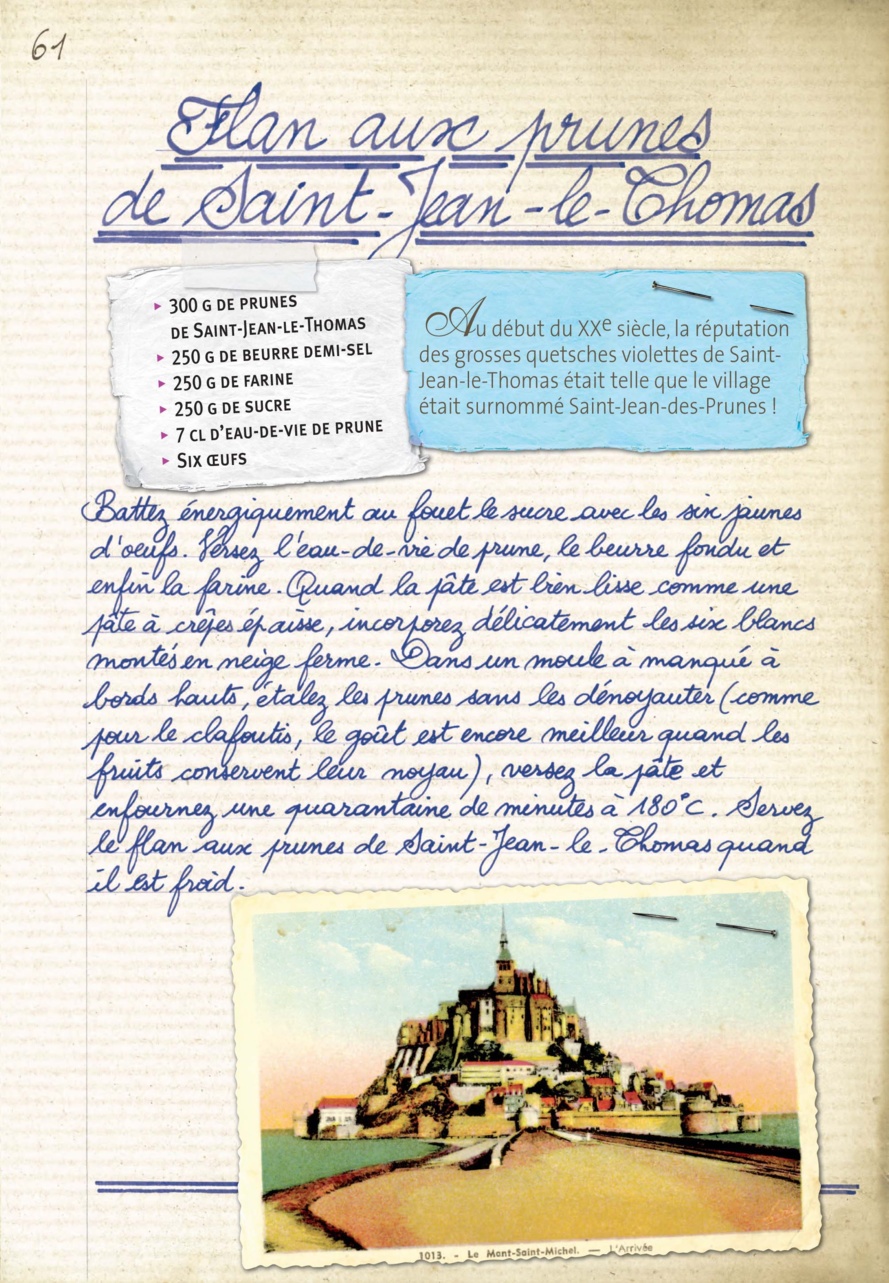 61
Flan aux prunes
de Saint-Jean-le-Thomas
▸ 300 G DE PRUNES
DE SAINT-JEAN-LE-THOMAS
▸ 250 G DE BEURRE DEMI-SEL
▸ 250 G DE FARINE
▸ 250 G DE SUCRE
▸ 7 CL D'EAU-DE-VIE DE PRUNE
▸ SIX ŒUFS
Au début du XXe siècle, la réputation
des grosses quetsches violettes de Saint-
Jean-le-Thomas était telle que le village
était surnommé Saint-Jean-des-Prunes !
Battez énergiquement au fouet le sucre avec les six jaunes
d'oeufs. Versez l'eau-de-vie de prune, le beurre fondu et
enfin la farine. Quand la pâte est bien lisse comme une
pâte à crêpes épaisse, incorporez délicatement les six blancs
montés en neige ferme. Dans un moule à manqué à
bords hauts, étalez les prunes sans les dénoyauter (comme
pour le clafoutis, le goût est encore meilleur quand les
fruits conservent leur noyau), versez la pâte et
enfournez une quarantaine de minutes à 180°C. Servez
le flan aux prunes de Saint-Jean-le-Thomas quand
il est froid.
1013. - Le Mont-Saint-Michel. — L'Arrivée